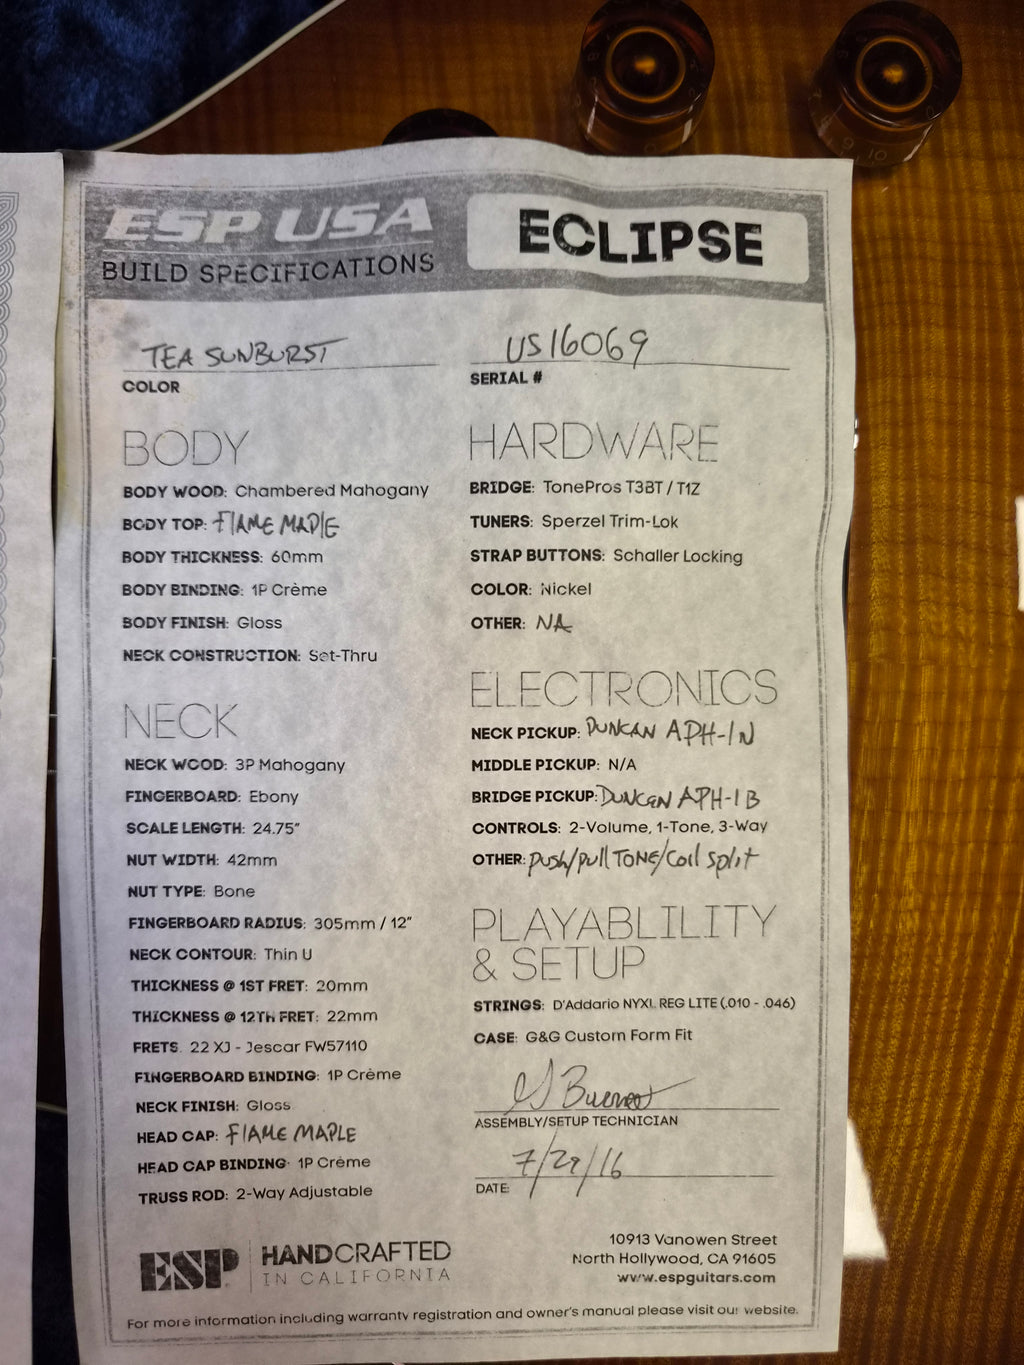 ESP USA
BUILD SPECIFICATIONS
ECLIPSE
TEA SUNBURST
COLOR
US16069
SERIAL #
BODY
BODY WOOD: Chambered Mahogany
BODY TOP: FLAME MAPLE
BODY THICKNESS: 60mm
BODY BINDING: 1P Crème
BODY FINISH: Gloss
NECK CONSTRUCTION: Set-Thru
NECK
NECK WOOD: 3P Mahogany
FINGERBOARD: Ebony
SCALE LENGTH: 24.75"
NUT WIDTH: 42mm
NUT TYPE: Bone
FINGERBOARD RADIUS: 305mm / 12"
NECK CONTOUR: Thin U
THICKNESS @ 1ST FRET: 20mm
THICKNESS @ 12TH FRET: 22mm
FRETS: 22 XJ - Jescar FW57110
FINGERBOARD BINDING: 1P Crème
NECK FINISH: Gloss
HEAD CAP: FLAME MAPLE
HEAD CAP BINDING: 1P Crème
TRUSS ROD: 2-Way Adjustable
HARDWARE
BRIDGE: TonePros T3BT / T1Z
TUNERS: Sperzel Trim-Lok
STRAP BUTTONS: Schaller Locking
COLOR: Nickel
OTHER: NA
ELECTRONICS
NECK PICKUP: DUNCAN APH-1N
MIDDLE PICKUP: N/A
BRIDGE PICKUP: DUNCAN APH-1B
CONTROLS: 2-Volume, 1-Tone, 3-Way
OTHER: Push/pull TONE/Coil Split
PLAYABLILITY
& SETUP
STRINGS: D'Addario NYXL REG LITE (.010 - .046)
CASE: G&G Custom Form Fit
ASSEMBLY/SETUP TECHNICIAN
7/29/16
DATE:
ESP
HANDCRAFTED
IN CALIFORNIA
10913 Vanowen Street
North Hollywood, CA 91605
www.espguitars.com
For more information including warranty registration and owner's manual please visit our website.